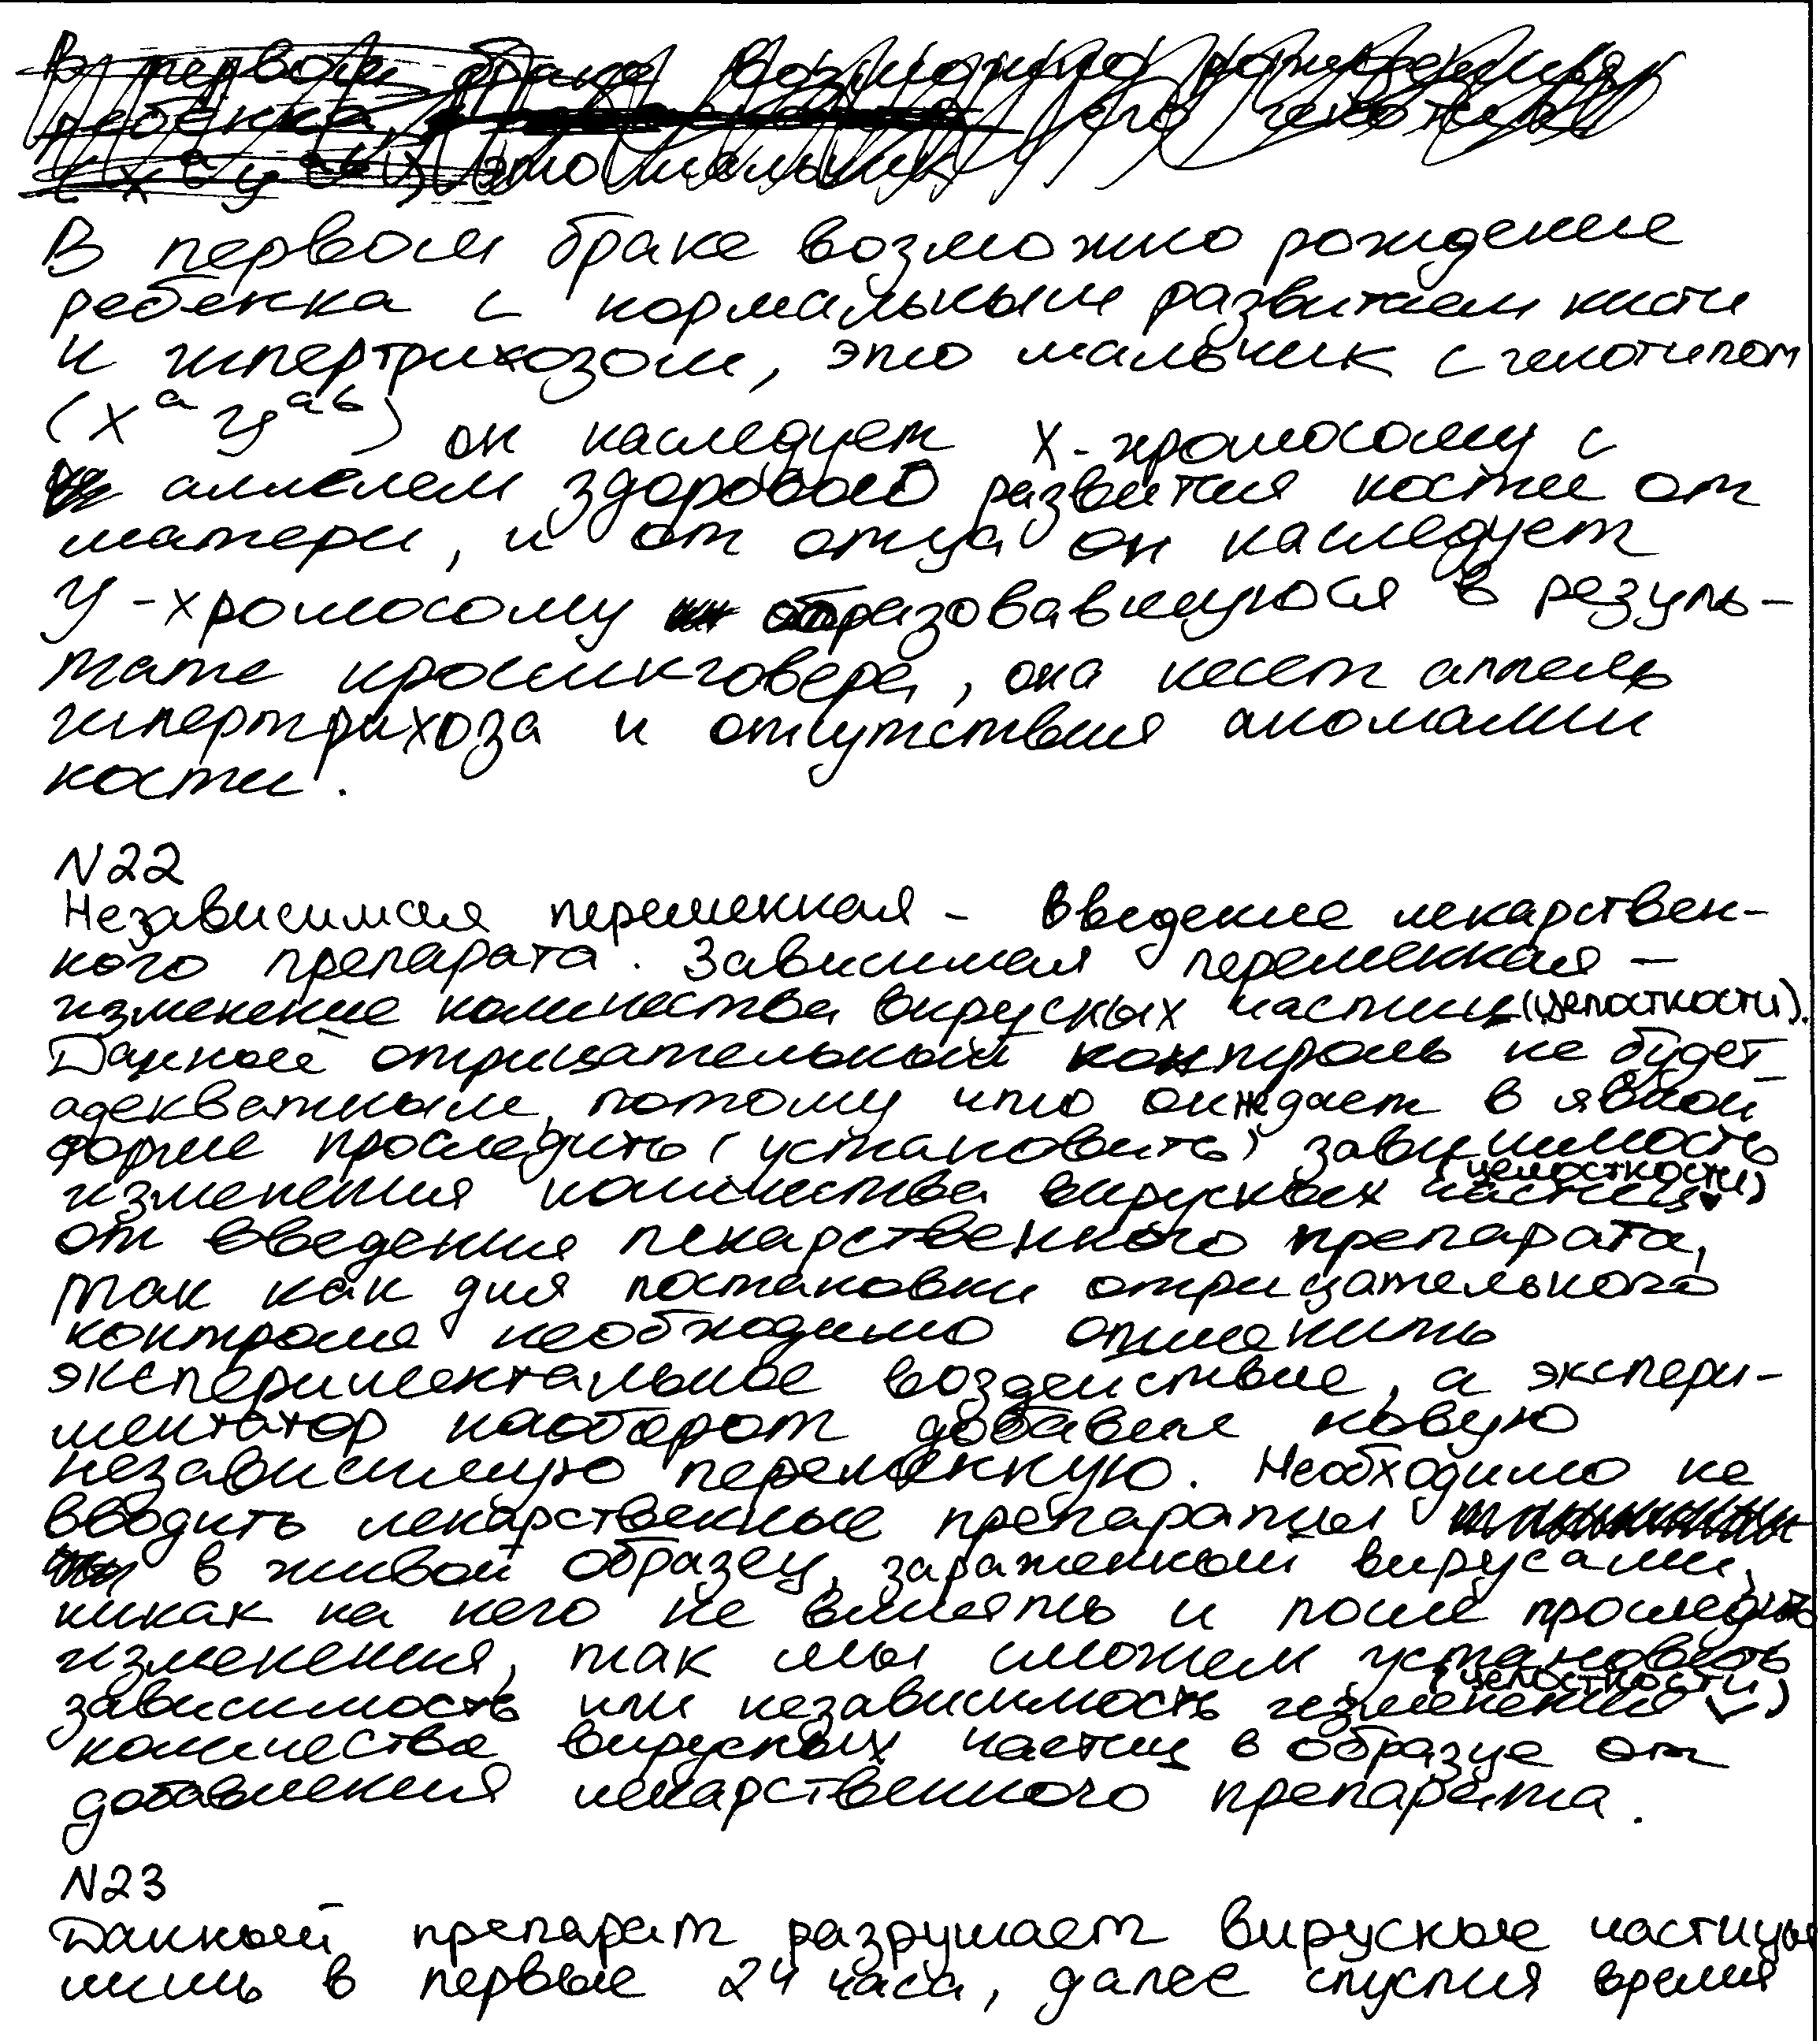 В первом браке возможно рождение
ребенка с нормальным развитием кисти
и гипертрихозом, это мальчик с генотипом
(X^a У^аb) он наследует X-хромосому с
аллелем здорового развития кости от
матери, и от отца он наследует
У-хромосому образовавшуюся в резуль-
тате кроссинговера, она несет аллель
гипертрихоза и отсутствия аномалии
кости.
N22
Независимая переменная - введение лекарствен-
ного препарата. Зависимая переменная —
изменение количества вирусных частиц (целостности).
Данный отрицательный контроль не будет
адекватным, потому что не дает в явной
форме проследить (установить) зависимость
изменения количества вирусных частиц (целостности)
от введения лекарственного препарата,
так как для постановки отрицательного
контроля необходимо отменить
экспериментальное воздействие, а экспери-
ментатор наоборот добавил новую
независимую переменную. Необходимо не
вводить лекарственные препараты
в живой образец, зараженный вирусами,
никак на него не влиять и после проследить
изменения, так мы сможем установить
зависимость или независимость изменения (целостности)
количества вирусных частиц в образце от
добавления лекарственного препарата.
N23
Данный препарат разрушает вирусные частицы
лишь в первые 24 часа, далее спустя время